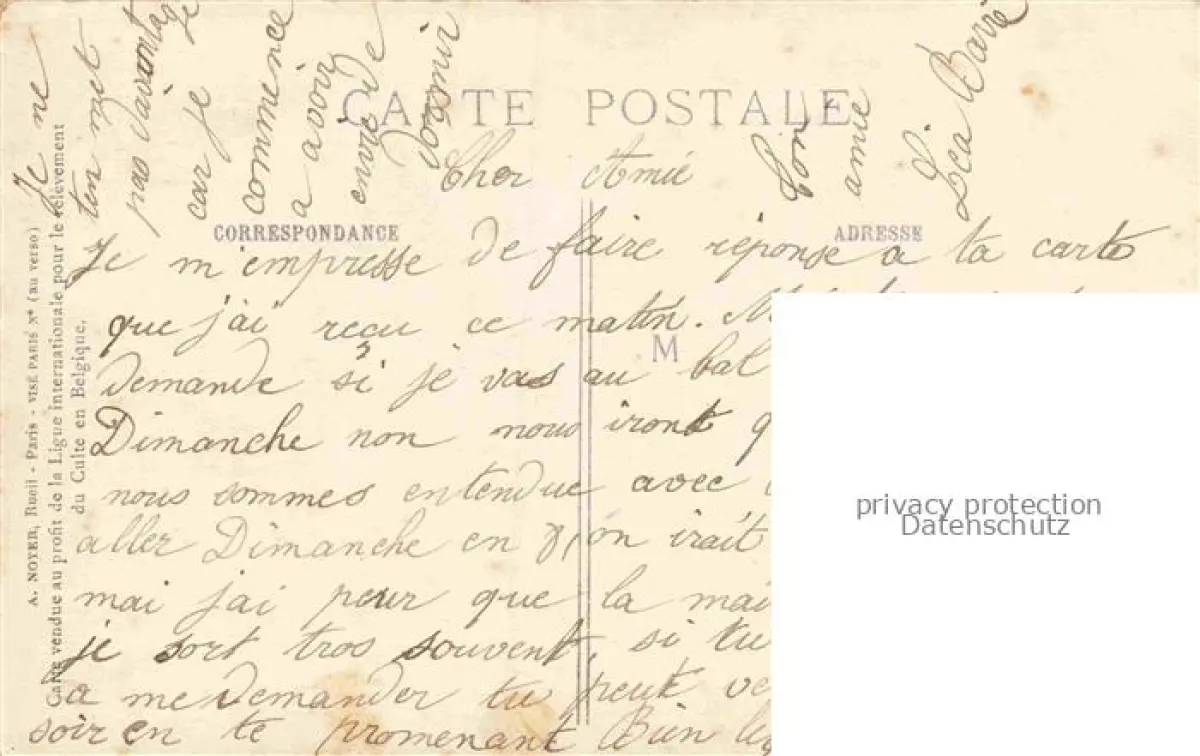 CARTE POSTALE
CORRESPONDANCE
ADRESSE
M
Cher Amie
Je m'empresse de faire réponse a ta carte
que j'ai recu ce matin.
demande si je vas au bal
Dimanche non nous iront q
nous sommes entendue avec
aller Dimanche en 8, on irait
mai j'ai peur que la mai
je sort tros souvent, si tu
a me demander tu peut ve
soir en te promenant Bien le
Je ne
t'en met
pas d'avantage
car je
commence
a avoir
envie de
dormir
Ton
amie
Léa Barré
A. NOYER, Rueil - Paris - VISÉ PARIS N° (au verso)
Carte vendue au profit de la Ligue internationale pour le relèvement
du Culte en Belgique.
privacy protection
Datenschutz